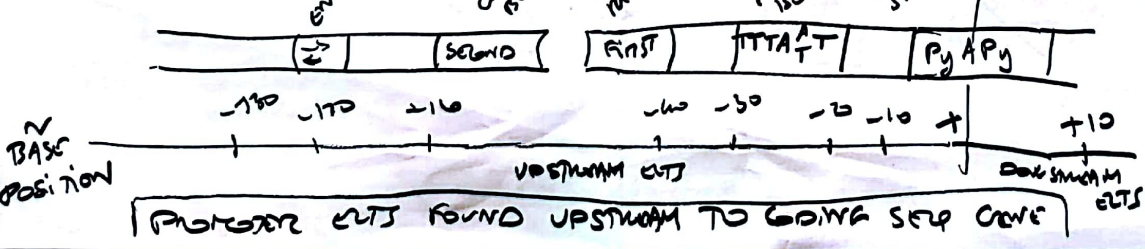 EN
SECOND FIRST TTTAATT PyAPy
-130 -110 -40 -30 -20 -10 + +10
~
BASE
POSITION
UPSTREAM ELTS DOWNSTREAM
ELTS
PROMOTER ELTS FOUND UPSTREAM TO CODING GENE